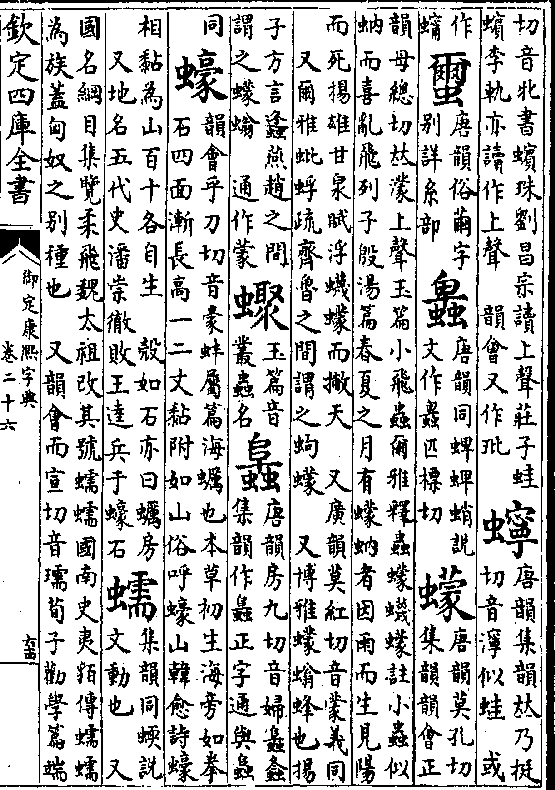 切音牝書蠙珠劉昌宗讀上聲莊子蛙
蠙李軌亦讀作上聲 韻會又作玭
䗿
唐韻集韻𠀤乃挺
切音濘似蛙 或
作
蠒
唐韻俗繭字
別詳糸部
唐韻同蜱蜱蛸說
文作蠯匹標切
蠓
唐韻莫孔切
集韻韻會正
韻母總切𠀤濛上聲玉篇小飛蟲爾雅釋蟲蠓蠛蠓註小蟲似
蚋而喜亂飛列子殷湯篇春夏之月有蠓蚋者因雨而生見陽
而死揚雄甘泉賦浮蠛蠓而撇天 又廣韻莫紅切音蒙義同
又爾雅蚍蜉疏齊魯之間謂之蚼蠓 又博雅蠓螉蜂也揚
子方言蠭燕趙之間
謂之蠓螉 通作蒙
𧓏
玉篇音
叢蟲名
䘀
唐韻房九切音婦䘀螽
集韻作 正字通與䘀
同
蠔
韻會乎刀切音豪蚌屬篇海蠣也本草初生海旁如拳
石四面漸長高一二丈黏附如山俗呼蠔山韓愈詩蠔
相黏為山百十各自生 殼如石亦曰蠣房
又地名五代史潘崇徹敗王逵兵于蠔石
蠕
集韻同蝡說
文動也 又
國名綱目集覽柔飛魏太祖改其號蠕蠕國南史夷貊傳蠕蠕
為族蓋匈奴之别種也 又韻會而宣切音瓀荀子勸學篇端
欽定四庫全書
御定康熙字典
卷二十六